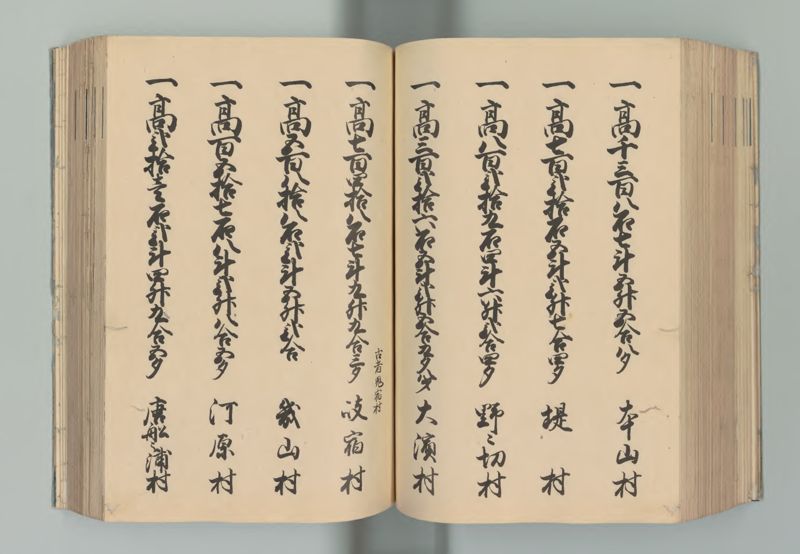 一高千三百八石七斗五升五合八夕 本山村
一高七百弐拾石五斗弐升七合四夕 堤村
一高八百弐拾五石四斗六升弐合四夕 野々切村
一高三百弐拾六石五斗弐升五合五夕八才 大濱村
古者
一高七百四拾八石七斗九升九合三夕 岐宿村
一高五百八拾八石弐斗五升弐合 戝山村
一高百五拾七石八斗弐升八合五夕 河原村
一高弐拾壱石弐斗四升九合五夕 唐舩之浦村